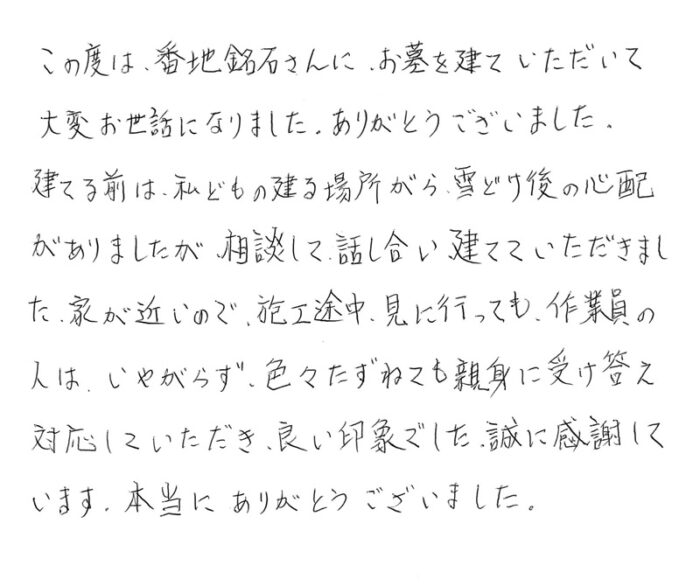 この度は、番地銘石さんに、お墓を建ていただいて
大変お世話になりました。ありがとうございました。
建てる前は、私どもの建る場所がら、雪どけ後の心配
がありましたが、相談して、話し合い、建てていただきまし
た。家が近いので、施工途中、見に行っても、作業員の
人は、いやがらず、色々たずねても親身に受け答え
対応していただき、良い印象でした。誠に感謝して
います。本当にありがとうございました。